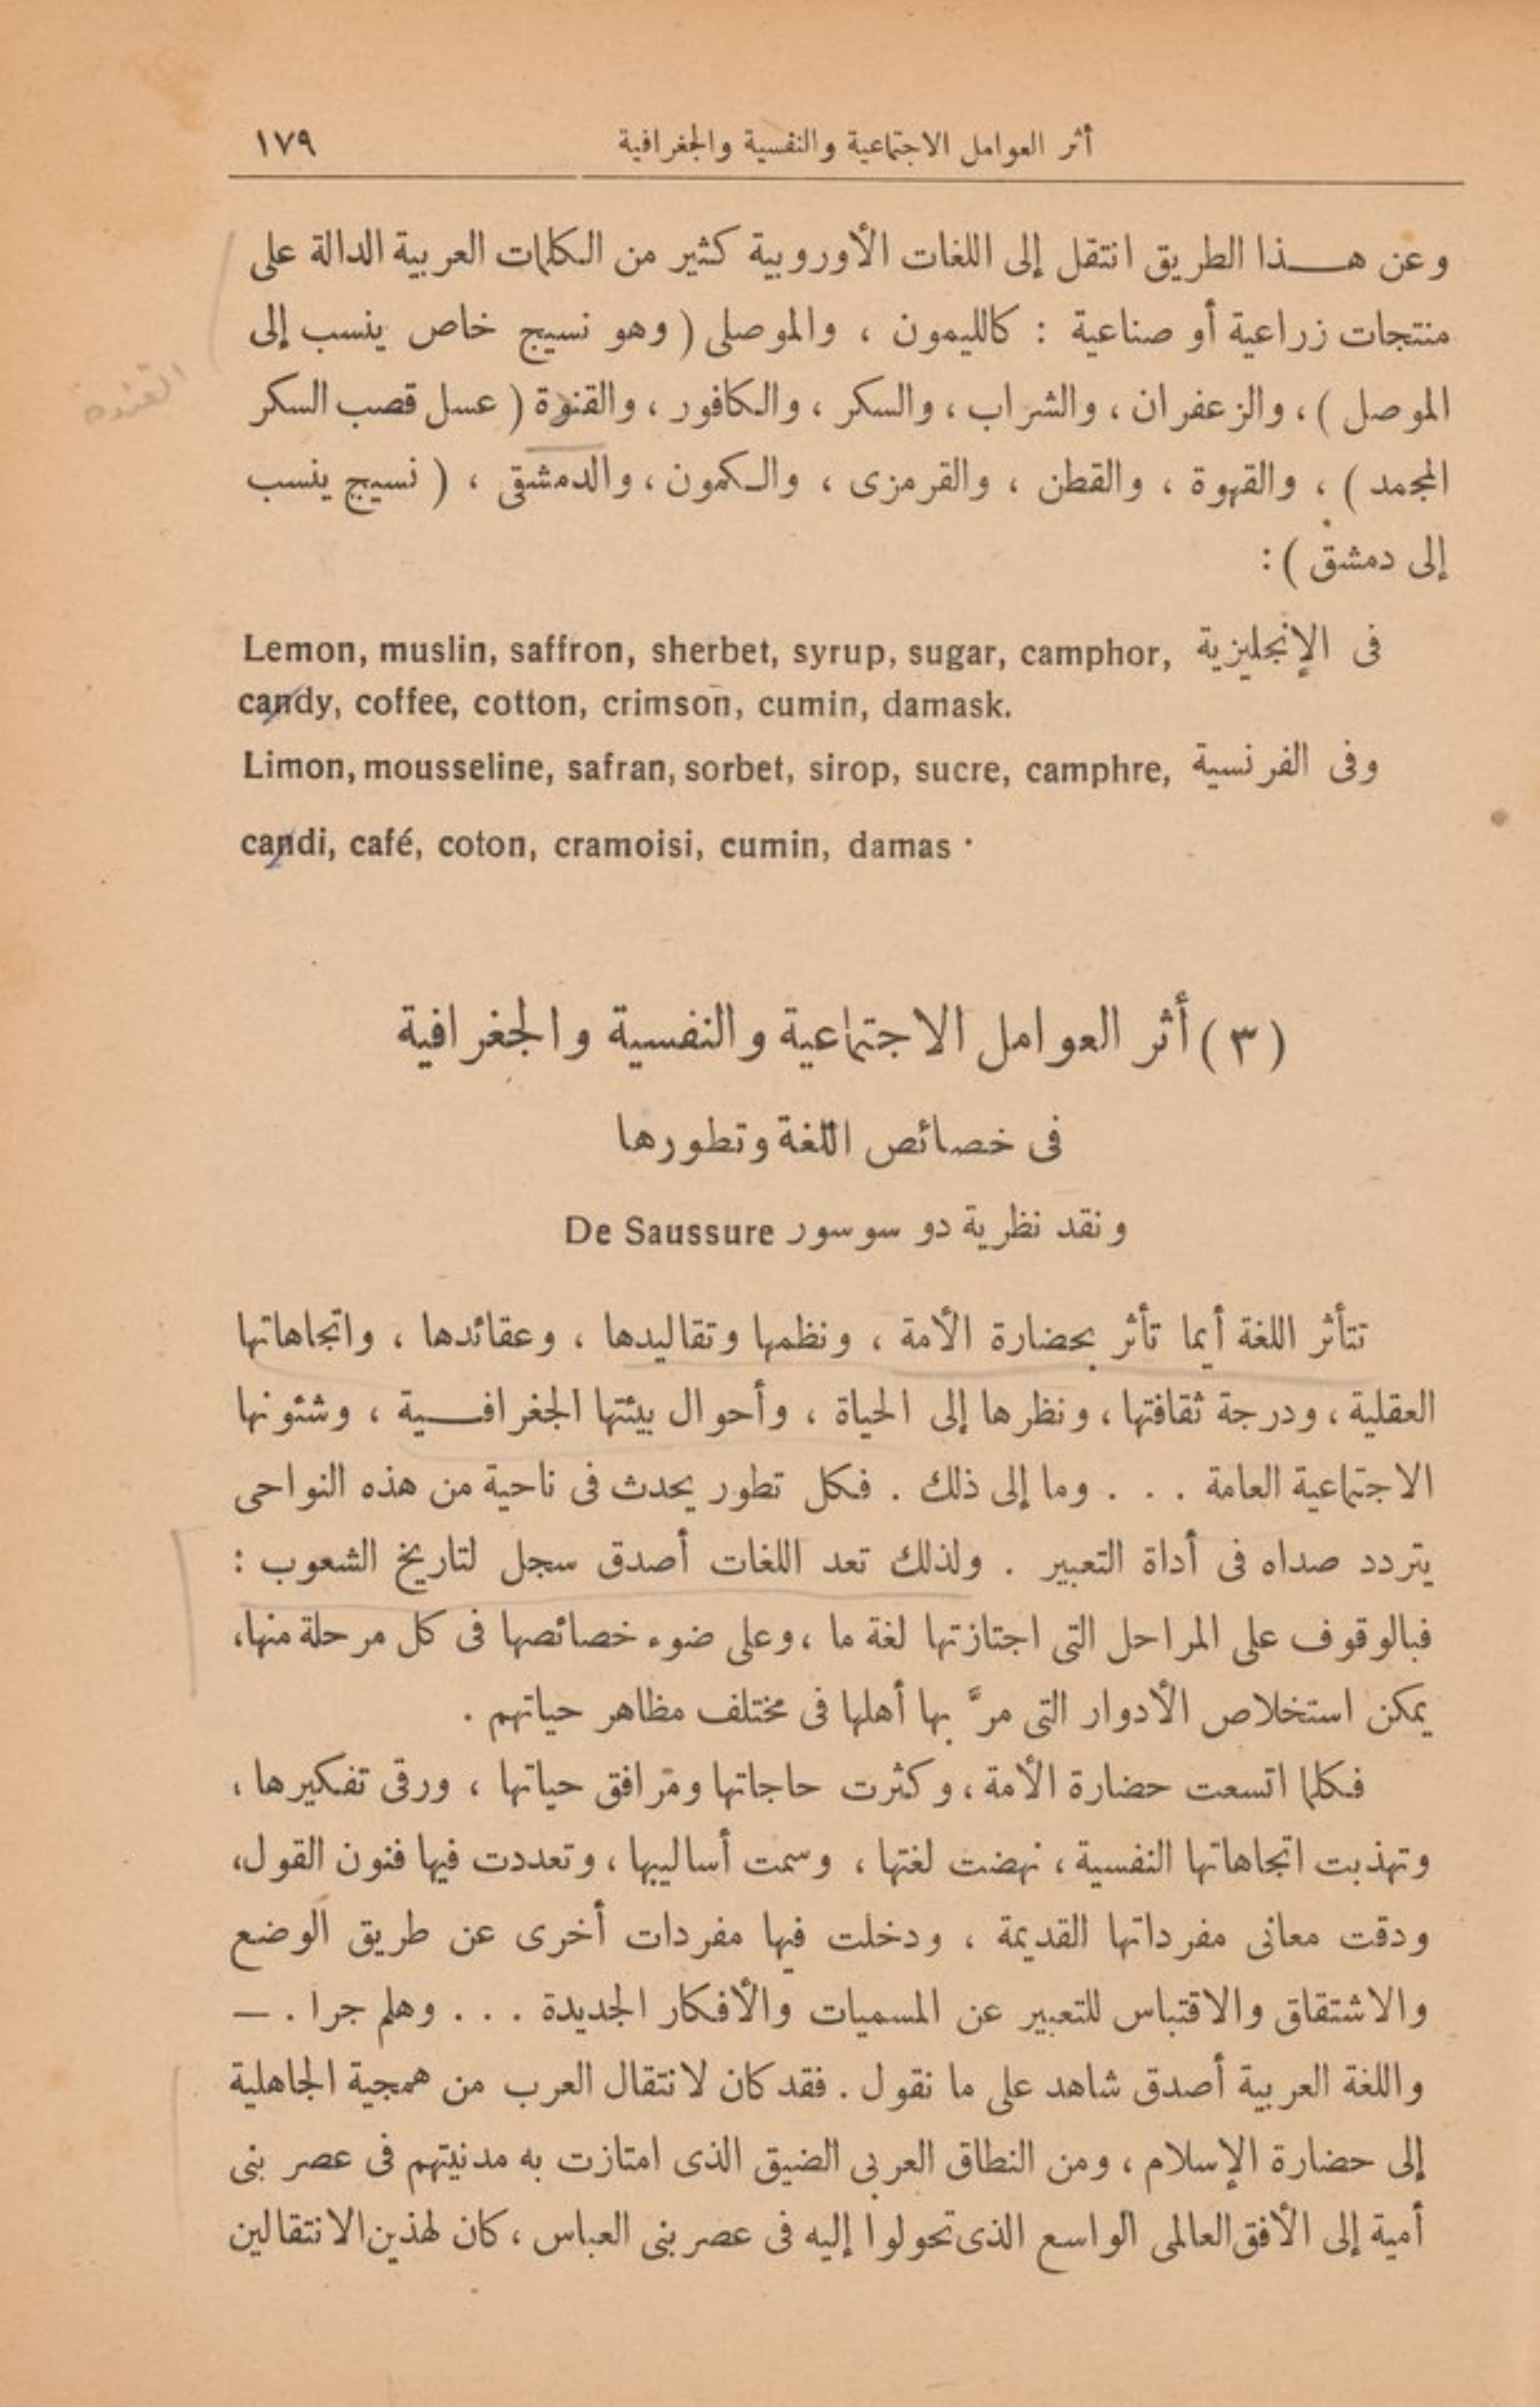 أثر العوامل الاجتماعية والنفسية والجغرافية ١٧٩
وعن هـــذا الطريق انتقل إلى اللغات الأوروبية كثير من الكلمات العربية الدالة على
منتجات زراعية أو صناعية : كالليمون ، والموصلى ( وهو نسيج خاص ينسب إلى
الموصل ) ، والزعفران ، والشراب ، والسكر ، والكافور ، والقنوة ( عسل قصب السكر
المجمد ) ، والقهوة ، والقطن ، والقرمزى ، والكمون ، والدمشقى ، ( نسيج ينسب
إلى دمشق ) :
فى الإنجليزية Lemon, muslin, saffron, sherbet, syrup, sugar, camphor,
candy, coffee, cotton, crimson, cumin, damask.
وفى الفرنسية Limon, mousseline, safran, sorbet, sirop, sucre, camphre,
candi, café, coton, cramoisi, cumin, damas .
( ٣ ) أثر العوامل الاجتماعية والنفسية والجغرافية
فى خصائص اللغة وتطورها
ونقد نظرية دو سوسور De Saussure
تتأثر اللغة أيما تأثر بحضارة الأمة ، ونظمها وتقاليدها ، وعقائدها ، واتجاهاتها
العقلية ، ودرجة ثقافتها ، ونظرها إلى الحياة ، وأحوال بيئتها الجغرافـــية ، وشئونها
الاجتماعية العامة . . . وما إلى ذلك . فكل تطور يحدث فى ناحية من هذه النواحى
يتردد صداه فى أداة التعبير . ولذلك تعد اللغات أصدق سجل لتاريخ الشعوب :
فبالوقوف على المراحل التى اجتازتها لغة ما ، وعلى ضوء خصائصها فى كل مرحلة منها،
يمكن استخلاص الأدوار التى مرَّ بها أهلها فى مختلف مظاهر حياتهم .
فكلما اتسعت حضارة الأمة ، وكثرت حاجاتها ومرافق حياتها ، ورقى تفكيرها ،
وتهذبت اتجاهاتها النفسية ، نهضت لغتها ، وسمت أساليبها ، وتعددت فيها فنون القول،
ودقت معانى مفرداتها القديمة ، ودخلت فيها مفردات أخرى عن طريق الوضع
والاشتقاق والاقتباس للتعبير عن المسميات والأفكار الجديدة . . . وهلم جرا . —
واللغة العربية أصدق شاهد على ما نقول . فقد كان لانتقال العرب من همجية الجاهلية
إلى حضارة الإسلام ، ومن النطاق العربى الضيق الذى امتازت به مدنيتهم فى عصر بنى
أمية إلى الأفق العالمى الواسع الذى تحولوا إليه فى عصر بنى العباس ، كان لهذين الانتقالين